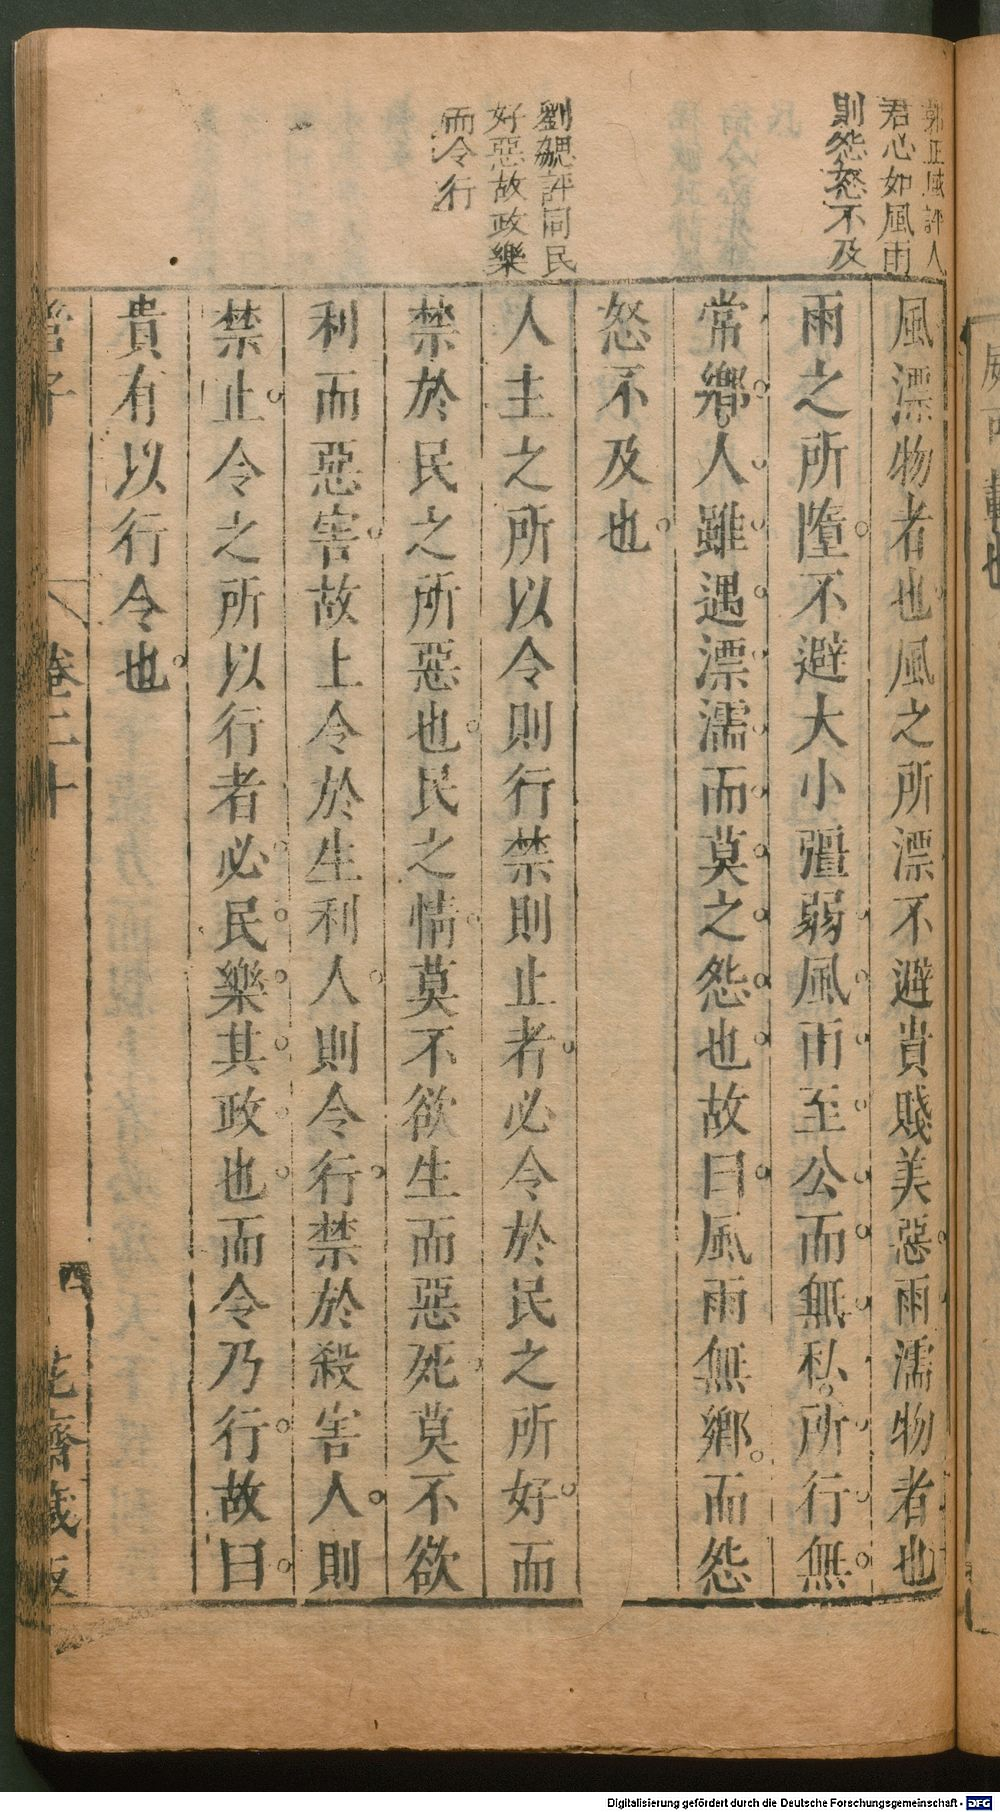 郭正域評人
君心如風雨
則怨怒不及
劉勰評同民
好惡故政樂
而令行
風漂物者也風之所漂不避貴賤美惡雨濡物者也
雨之所墮不避大小彊弱風雨至公而無私所行無
常鄉人雖遇漂濡而莫之怨也故曰風雨無鄉而怨
怒不及也
人主之所以令則行禁則止者必令於民之所好而
禁於民之所惡也民之情莫不欲生而惡死莫不欲
利而惡害故上令於生利人則令行禁於殺害人則
禁止令之所以行者必民樂其政也而令乃行故曰
貴有以行令也
管子 卷二十 四 花齋藏板
Digitalisierung gefördert durch die Deutsche Forschungsgemeinschaft - DFG